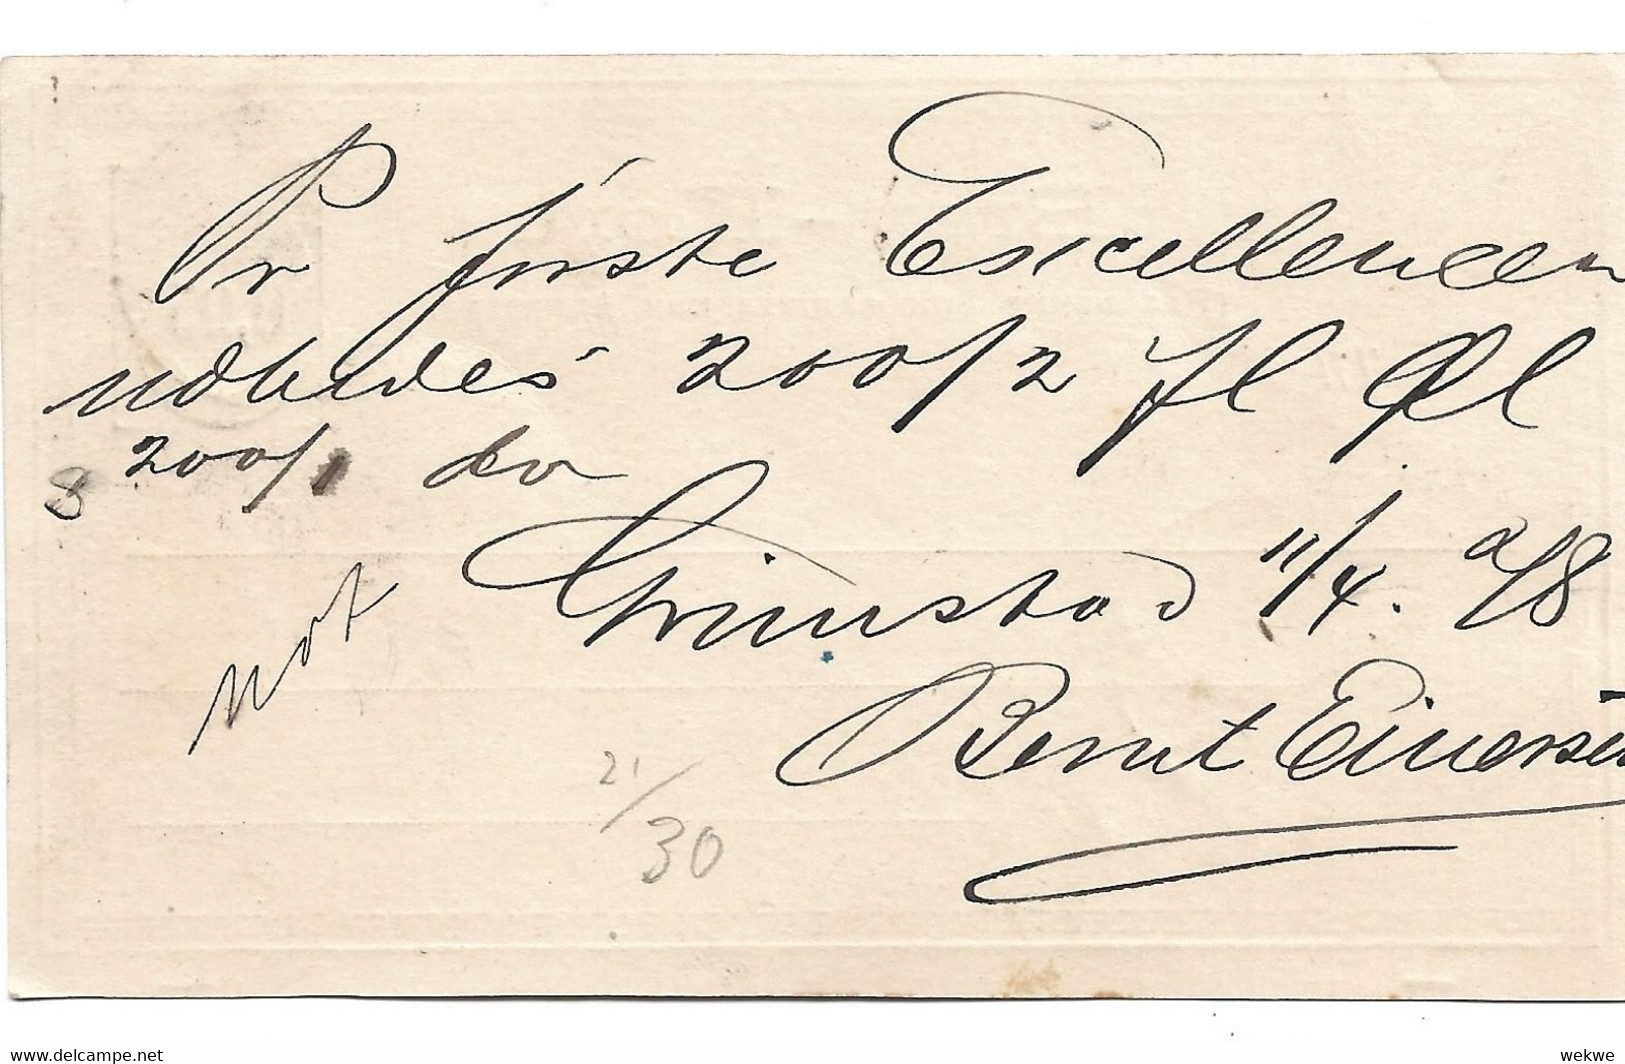 Pr første Excellencen
udbedes 200/2 fl Øl
8 200/1 do
Grimstad 11/4. 98
not
Bernt Einersen
21/30
www.delcampe.net
wekwe